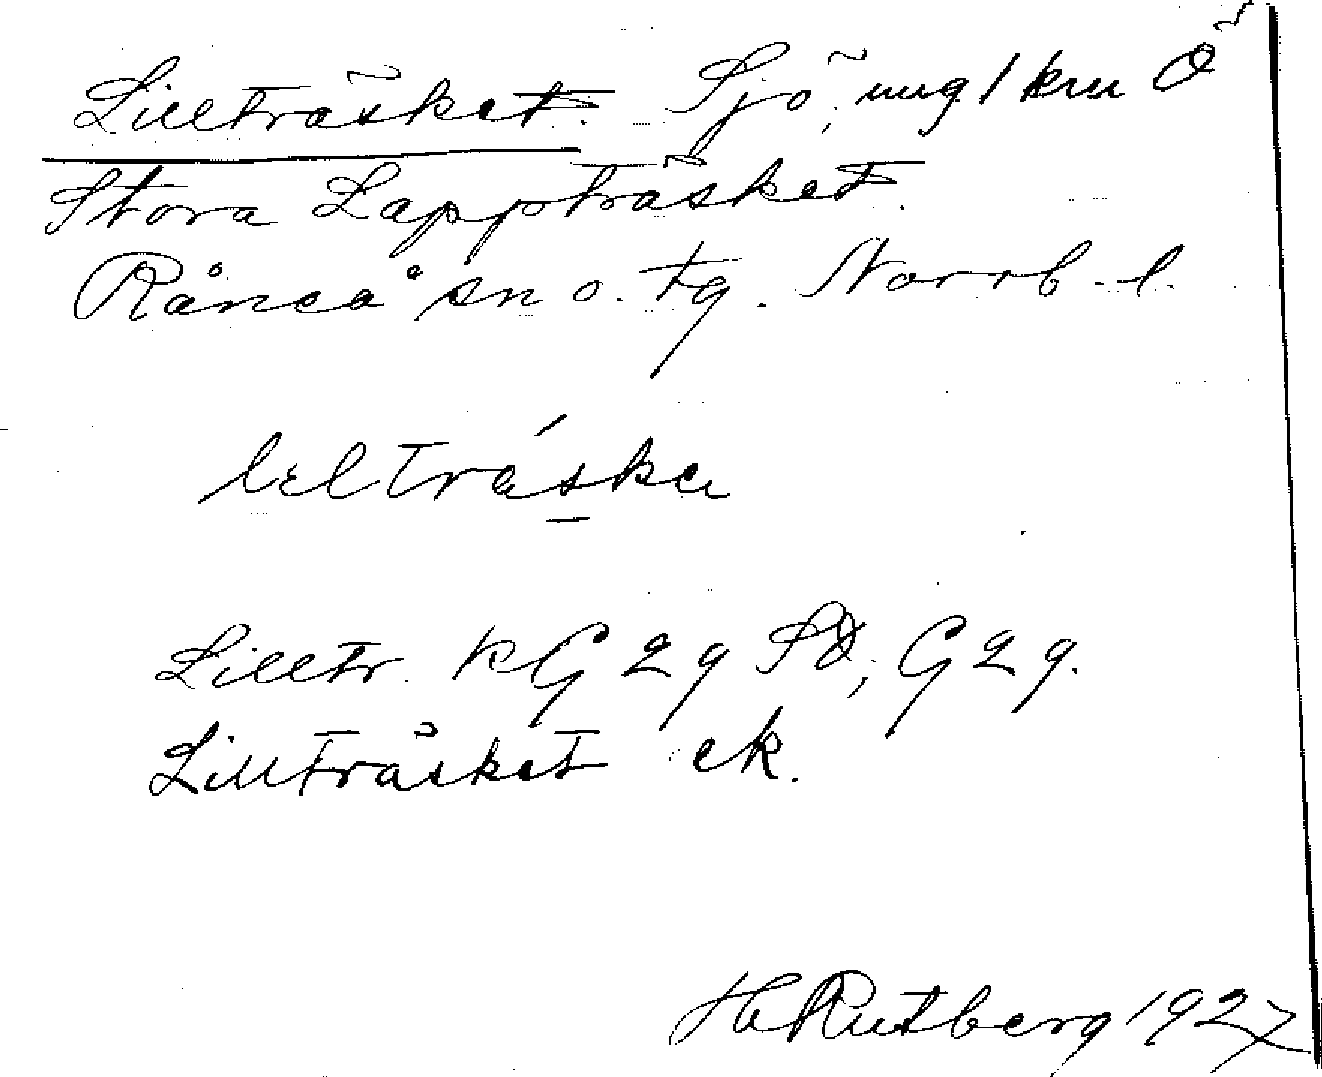 Lillträsket. Sjö, ung 1 km Ö
Stora Lappträsket.
Råneå sn o. tg. Norrb. l.
Lilltr. kG 29 SO, G 29.
Lillträsket ek.
H Rutberg 1927